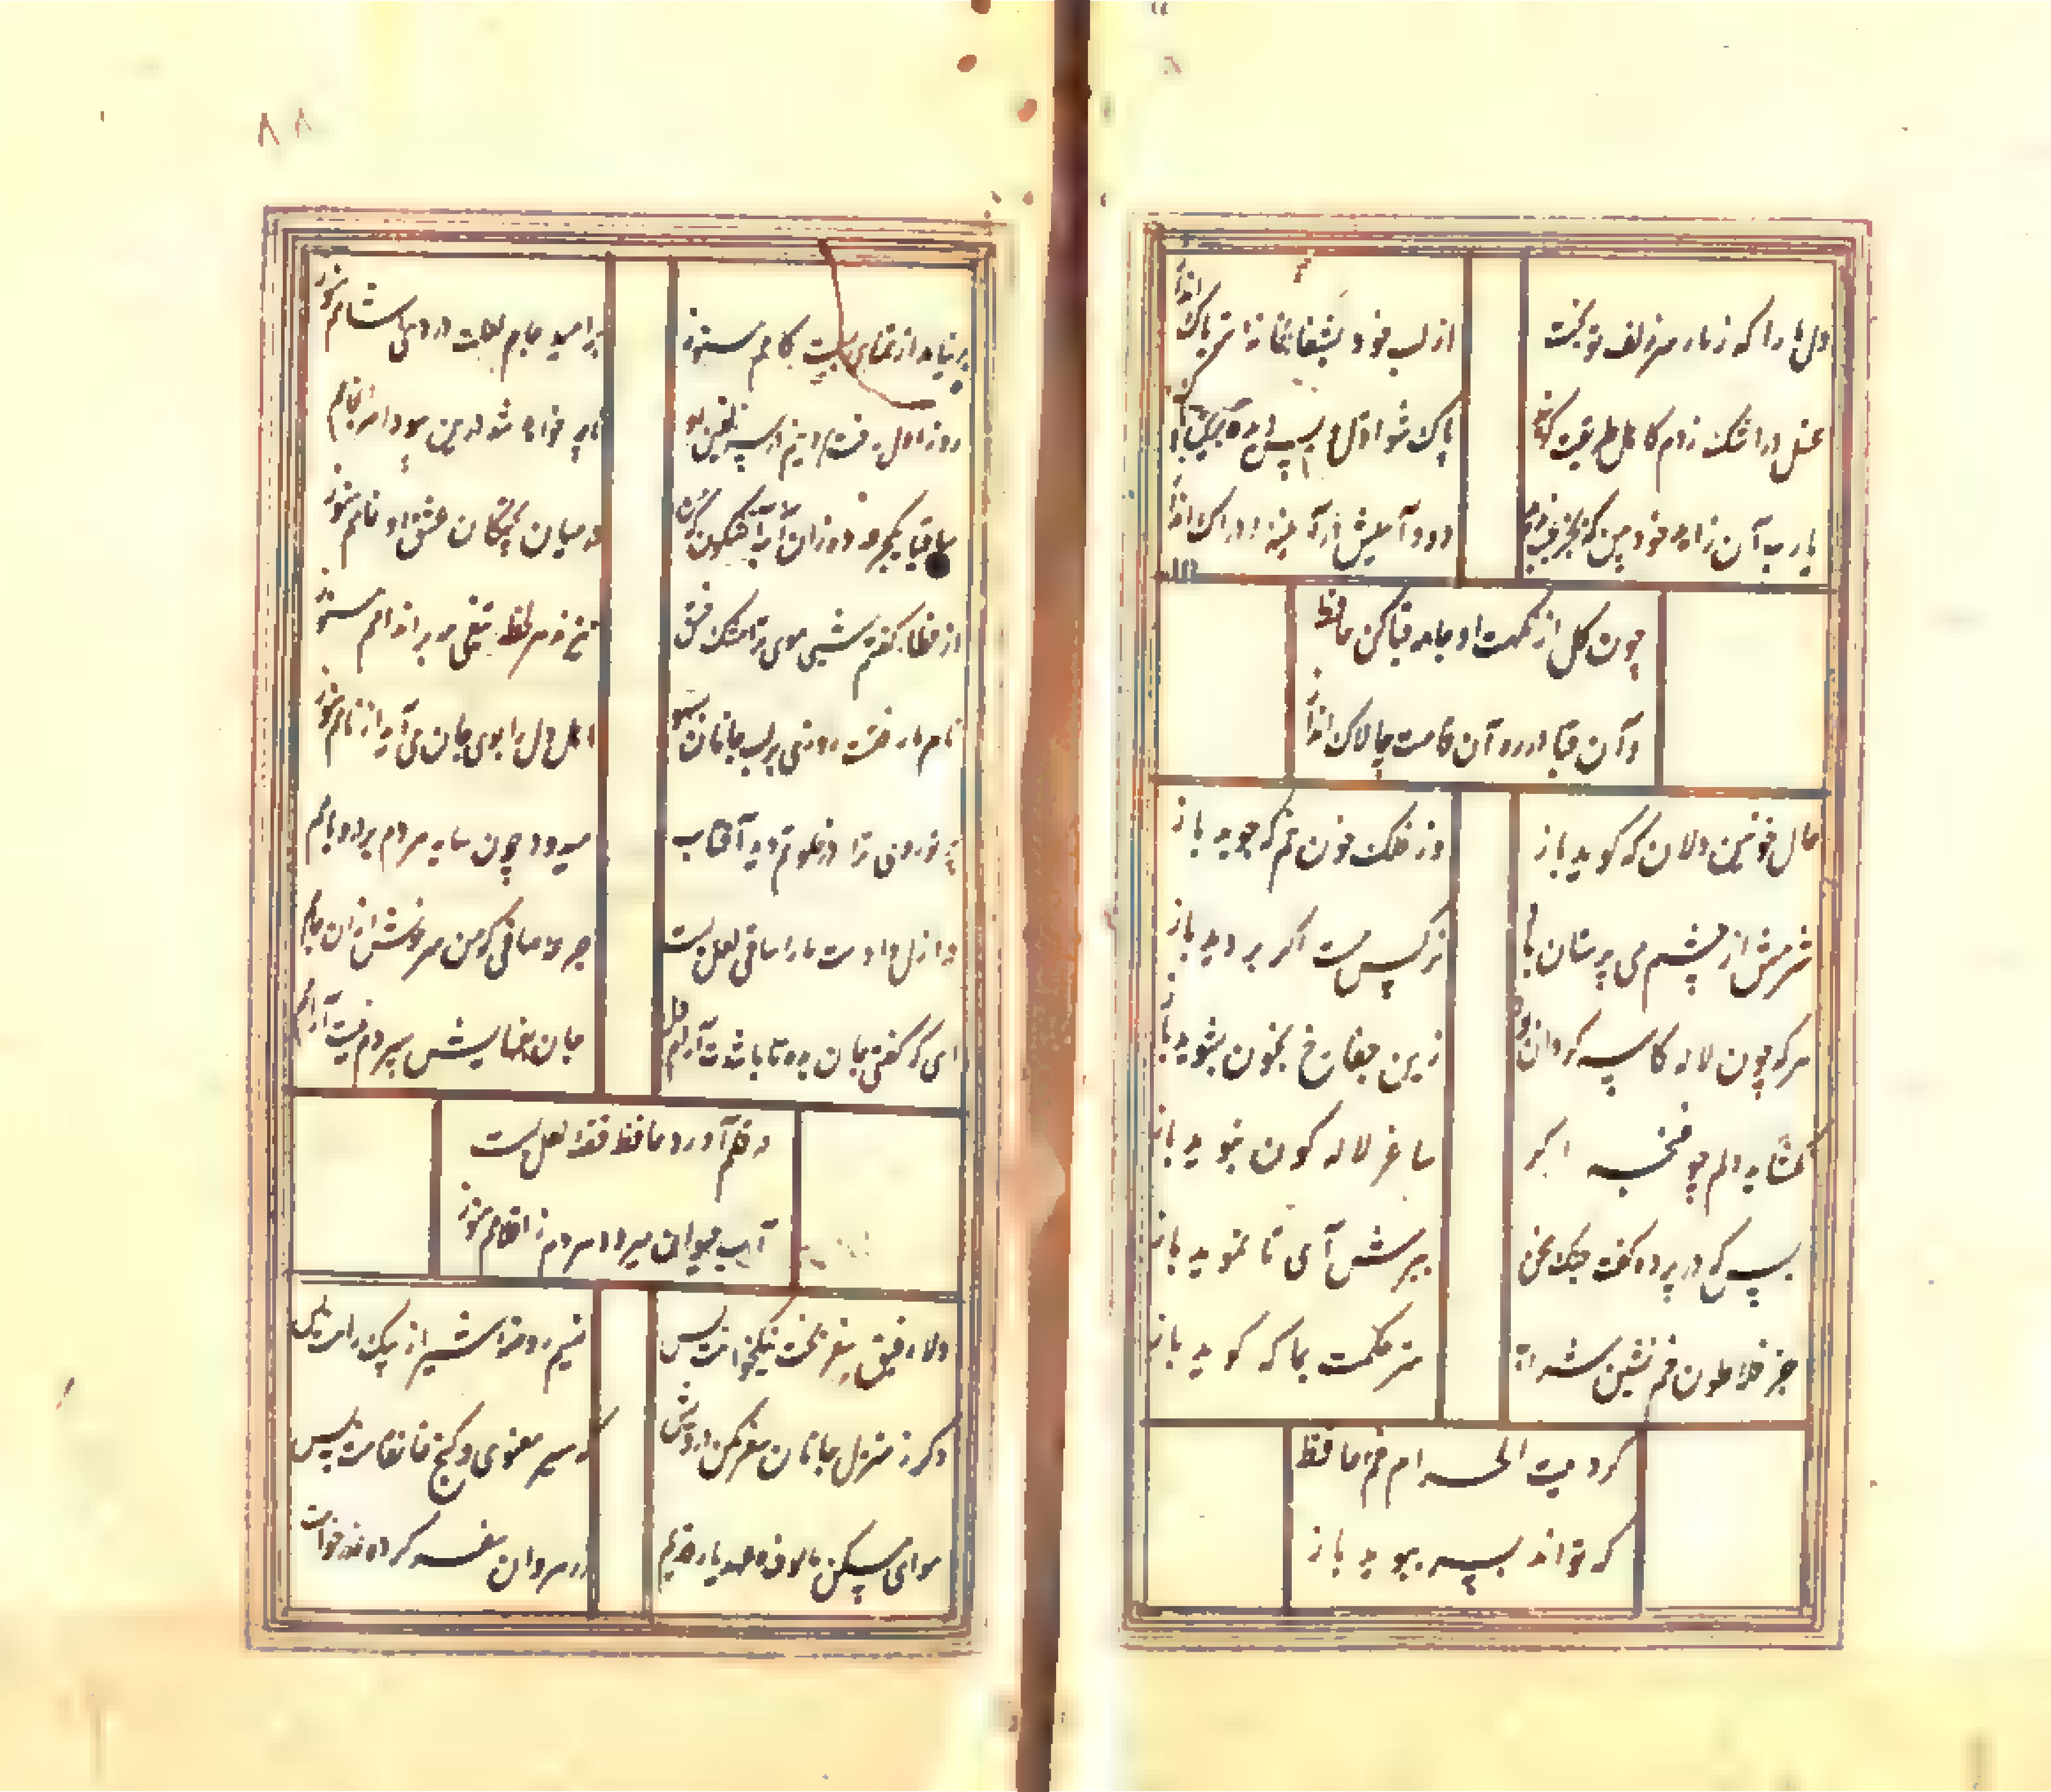 دل ما را که ز مار سر زلف تو بخست
از لب خود بشفاخانه تریاک انداز
غسل در اشک زدم کاهل طریقت گویند
پاک شو اول و پس دیده بر آن پاک انداز
یارب آن زاهد خودبین که بجز عیب ندید
دود آهیش در آیینه ادراک انداز
چون گل از نکهت او جامه قبا کن حافظ
وآن قبا در ره آن قامت چالاک انداز
حال خونین دلان که گوید باز
وز فلک خون خم که جوید باز
شرمش از چشم می پرستان باد
نرگس مست اگر بروید باز
هرکه چون لاله کاسه گردان شد
زین جفا رخ بخون بشوید باز
نگشاید دلم چو غنچه اگر
ساغر لاله گون نبوید باز
بس که در پرده گفت چنگ سخن
ببرش آی تا نموید باز
جز فلاطون خم نشین شراب
سر حکمت بما که گوید باز
گرد بیت الحرام خم حافظ
گر تواند بسر بپوید باز
۸۸
بر نیامد از تمنای لبت کامم هنوز
بر امید جام لعلت دردی آشامم هنوز
روز اول رفت دینم در سر زلفین تو
تا چه خواهد شد درین سودا سرانجامم هنوز
ساقیا یک جرعه ده زان آب آتشگون که من
در میان پختگان عشق او خامم هنوز
از خطا گفتم شبی موی ترا مشک ختن
می زند هر لحظه تیغی مو بر اندامم هنوز
نام من رفتست روزی بر لب جانان بسهو
اهل دل را بوی جان می آید از نامم هنوز
پرتو روی ترا در خلوتم دید آفتاب
میرود چون سایه هردم بر در و بامم هنوز
در ازل دادست ما را ساقی لعل لبت
جرعه جامی که من سرخوش از آن جامم هنوز
ای که گفتی جان بده تا باشدت آرام دل
جان بغمهایش سپردم نیست آرامم هنوز
در قلم آورد حافظ قصه لعل لبت
آب حیوان میرود هردم ز اقلامم هنوز
دلا رفیق سفر بخت نیکخواهت بس
نسیم روضه شیراز پیک راهت بس
دگر ز منزل جانان سفر مکن درویش
که سیر معنوی و کنج خانقاهت بس
هوای مسکن مالوف و عهد یار قدیم
ز رهروان سفر کرده عذر خواهت بس